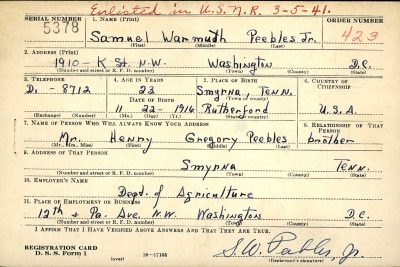 Enlisted in U.S.N.R. 3-5-41.
SERIAL NUMBER 1. NAME (Print) ORDER NUMBER
5378 Samuel Warmuth Peebles Jr. 423
(First) (Middle) (Last)
2. ADDRESS (Print)
1910 - K St. N.W. Washington D.C.
(Number and street or R. F. D. number) (Town) (County) (State)
3. TELEPHONE 4. AGE IN YEARS 5. PLACE OF BIRTH 6. COUNTRY OF CITIZENSHIP
Di. - 8712 23 Smyrna, Tenn.
DATE OF BIRTH (Town or county)
11 22 - 1916 Rutherford U.S.A.
(Exchange) (Number) (Mo.) (Day) (Yr.) (State or country)
7. NAME OF PERSON WHO WILL ALWAYS KNOW YOUR ADDRESS 8. RELATIONSHIP OF THAT PERSON
Mr. Henry Gregory Peebles brother
(Mr., Mrs., Miss) (First) (Middle) (Last)
9. ADDRESS OF THAT PERSON
Smyrna Tenn.
(Number and street or R. F. D. number) (Town) (County) (State)
10. EMPLOYER'S NAME
Dept. of Agriculture
11. PLACE OF EMPLOYMENT OR BUSINESS
12th + Pa. Ave. N.W. Washington D.C.
(Number and street or R. F. D. number) (Town) (County) (State)
I AFFIRM THAT I HAVE VERIFIED ABOVE ANSWERS AND THAT THEY ARE TRUE.
REGISTRATION CARD
D. S. S. Form 1 16-17105 S. W. Peebles, Jr.